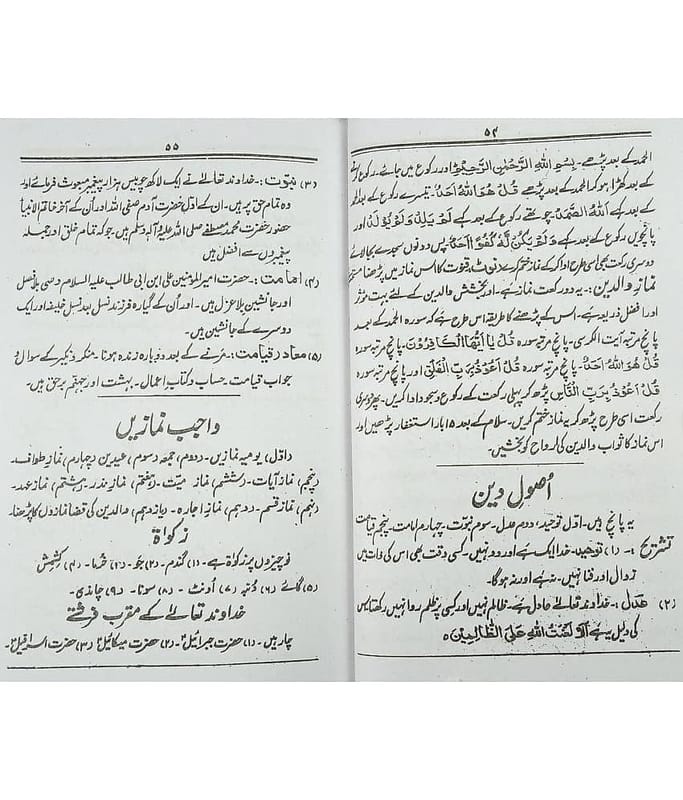 ۵۴
الحمد کے بعد پڑھے۔ بِسْمِ اللّٰهِ الرَّحْمٰنِ الرَّحِيْمِ اور رکوع میں جائے۔ رکوع
کے بعد کھڑا ہو کر الحمد کے بعد پڑھے قُلْ هُوَ اللّٰهُ اَحَدٌ۔ تیسرے رکوع کے بعد
کے بعد کہے اَللّٰهُ الصَّمَدُ چوتھے رکوع کے بعد کہے لَمْ يَلِدْ وَلَمْ يُوْلَدْ اور
پانچویں رکوع کے بعد کہے وَلَمْ يَكُنْ لَّهٗ كُفُوًا اَحَدٌ پس دونوں سجدے بجا لائے
دوسری رکعت بھی اسی طرح ادا کر کے نماز ختم کرے نوٹ، قنوت کا اس نماز میں پڑھنا
نمازِ والدین :۔ یہ دو رکعت نماز ہے۔ اور بخشش والدین کے لئے بہت مؤثر
اور افضل ذریعہ ہے۔ اس کے پڑھنے کا طریقہ اس طرح ہے کہ سورہ الحمد کے بعد
پانچ مرتبہ آیت الکرسی۔ پانچ مرتبہ سورہ قُلْ يٰاَيُّهَا الْكَافِرُوْنَ۔ پانچ مرتبہ سورہ
قُلْ هُوَ اللّٰهُ اَحَدٌ۔ پانچ مرتبہ سورہ قُلْ اَعُوْذُ بِرَبِّ الْفَلَقِ اور پانچ مرتبہ سورہ
قُلْ اَعُوْذُ بِرَبِّ النَّاسِ پڑھ کر پہلی رکعت کے رکوع و سجود ادا کریں۔ پھر دوسری
رکعت اسی طرح پڑھ کر یہ نماز ختم کریں۔ سلام کے بعد ۱۵ بار استغفار پڑھیں اور
اس نماز کا ثواب والدین کی ارواح کو بخشیں۔
اُصولِ دین
یہ پانچ ہیں۔ اوّل توحید، دوم عدل۔ سوم نبوّت۔ چہارم امامت۔ پنجم قیامت
تشریح :۔ (۱) توحید۔ خدا ایک ہے اور دو نہیں۔ کسی وقت بھی اس کی ذات میں
زوال اور فنا نہیں۔ نہ ہے اور نہ ہوگا۔
(۲) عدل :۔ خداوند تعالےٰ عادل ہے۔ ظالم نہیں اور کسی پر ظلم روا نہیں رکھتا اس
کی دلیل یہ ہے اَلَا لَعْنَتُ اللّٰهِ عَلَى الظَّالِمِيْنَ ہ
۵۵
(۳) نبوّت :۔ خداوند تعالےٰ نے ایک لاکھ چوبیس ہزار پیغمبر مبعوث فرمائے اور
وہ تمام حق پر ہیں۔ ان کے اوّل حضرت آدم صفی اللہ اور اُن کے آخر خاتم الانبیاؐ
حضور حضرت محمد مصطفےٰ صلی اللہ علیہ وآلہ وسلم ہیں۔ جو کہ تمام خلق اور جملہ
پیغمبروں سے افضل ہیں
(۴) امامت :۔ حضرت امیرالمؤمنین علی ابن ابی طالب علیہ السلام وصی بلافصل
اور جانشین بلاعزل ہیں۔ اور اُن کے گیارہ فرزند نسل بعد نسل خلیفہ اور ایک
دوسرے کے جانشین ہیں۔
(۵) معاد رقیامت :۔ مرنے کے بعد دوبارہ زندہ ہونا۔ منکر و نکیر کے سوال و
جواب قیامت۔ حساب و کتاب اعمال۔ بہشت اور جہنم برحق ہیں۔
واجب نمازیں
داوّل، یومیہ نمازیں۔ دوم، جمعہ دسوم، عیدین دچہارم، نمازِ طواف۔
دپنجم، نماز آیات۔ دششم، نماز میّت۔ دہفتم، نمازِ نذر۔ دہشتم، نماز عہد۔
دنہم، نماز قسم۔ ددہم، نماز اجارہ۔ دیازدہم، والدین کی قضا نمازوں کا پڑھنا
زکوٰۃ
نو چیزوں پر زکوٰۃ ہے۔ (۱) گندم۔ (۲) جَو۔ (۳) خُرما۔ (۴) کِشمِش
(۵) گائے (۶) دُنبہ (۷) اُونٹ۔ (۸) سونا۔ (۹) چاندی۔
خداوند تعالےٰ کے مقرب فرشتے
چار ہیں۔ (۱) حضرت جبرائیلؑ۔ (۲) حضرت میکائیلؑ (۳) حضرت اسرافیلؑ